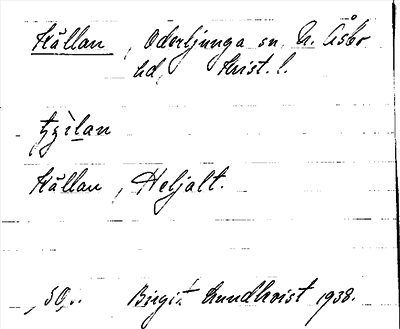 Källan, Oderljunga sn, N. Åsbo
hd, Krist. l.
Källan, Heljalt.
50. Birgit Lundkvist 1938.